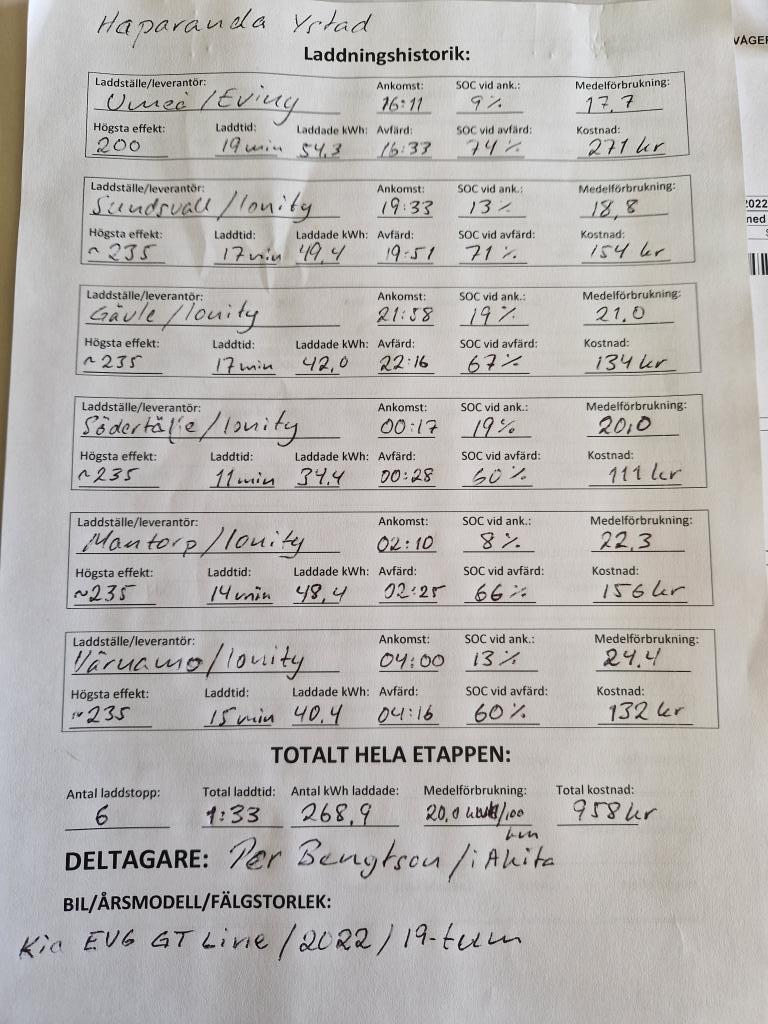 Haparanda Ystad
Laddningshistorik:
Laddställe/leverantör: Ankomst: SOC vid ank.: Medelförbrukning:
Umeå/Eviny 16:11 9% 17,7
Högsta effekt: Laddtid: Laddade kWh: Avfärd: SOC vid avfärd: Kostnad:
200 19min 54,3 16:33 74% 271 kr
Laddställe/leverantör: Ankomst: SOC vid ank.: Medelförbrukning:
Sundsvall/Ionity 19:33 13% 18,8
Högsta effekt: Laddtid: Laddade kWh: Avfärd: SOC vid avfärd: Kostnad:
~235 17min 49,4 19:51 71% 154 kr
Laddställe/leverantör: Ankomst: SOC vid ank.: Medelförbrukning:
Gävle/Ionity 21:58 19% 21,0
Högsta effekt: Laddtid: Laddade kWh: Avfärd: SOC vid avfärd: Kostnad:
~235 17min 42,0 22:16 67% 134 kr
Laddställe/leverantör: Ankomst: SOC vid ank.: Medelförbrukning:
Södertälje/Ionity 00:17 19% 20,0
Högsta effekt: Laddtid: Laddade kWh: Avfärd: SOC vid avfärd: Kostnad:
~235 11min 34,4 00:28 60% 111 kr
Laddställe/leverantör: Ankomst: SOC vid ank.: Medelförbrukning:
Mantorp/Ionity 02:10 8% 22,3
Högsta effekt: Laddtid: Laddade kWh: Avfärd: SOC vid avfärd: Kostnad:
~235 14min 48,4 02:25 66% 156 kr
Laddställe/leverantör: Ankomst: SOC vid ank.: Medelförbrukning:
Värnamo/Ionity 04:00 13% 24,4
Högsta effekt: Laddtid: Laddade kWh: Avfärd: SOC vid avfärd: Kostnad:
~235 15min 40,4 04:16 60% 132 kr
TOTALT HELA ETAPPEN:
Antal laddstopp: Total laddtid: Antal kWh laddade: Medelförbrukning: Total kostnad:
6 1:33 268,9 20,0 /100 km 958 kr
DELTAGARE: Per Bengtson/iAkita
BIL/ÅRSMODELL/FÄLGSTORLEK:
Kia EV6 GT Line/2022/19-tum
2022